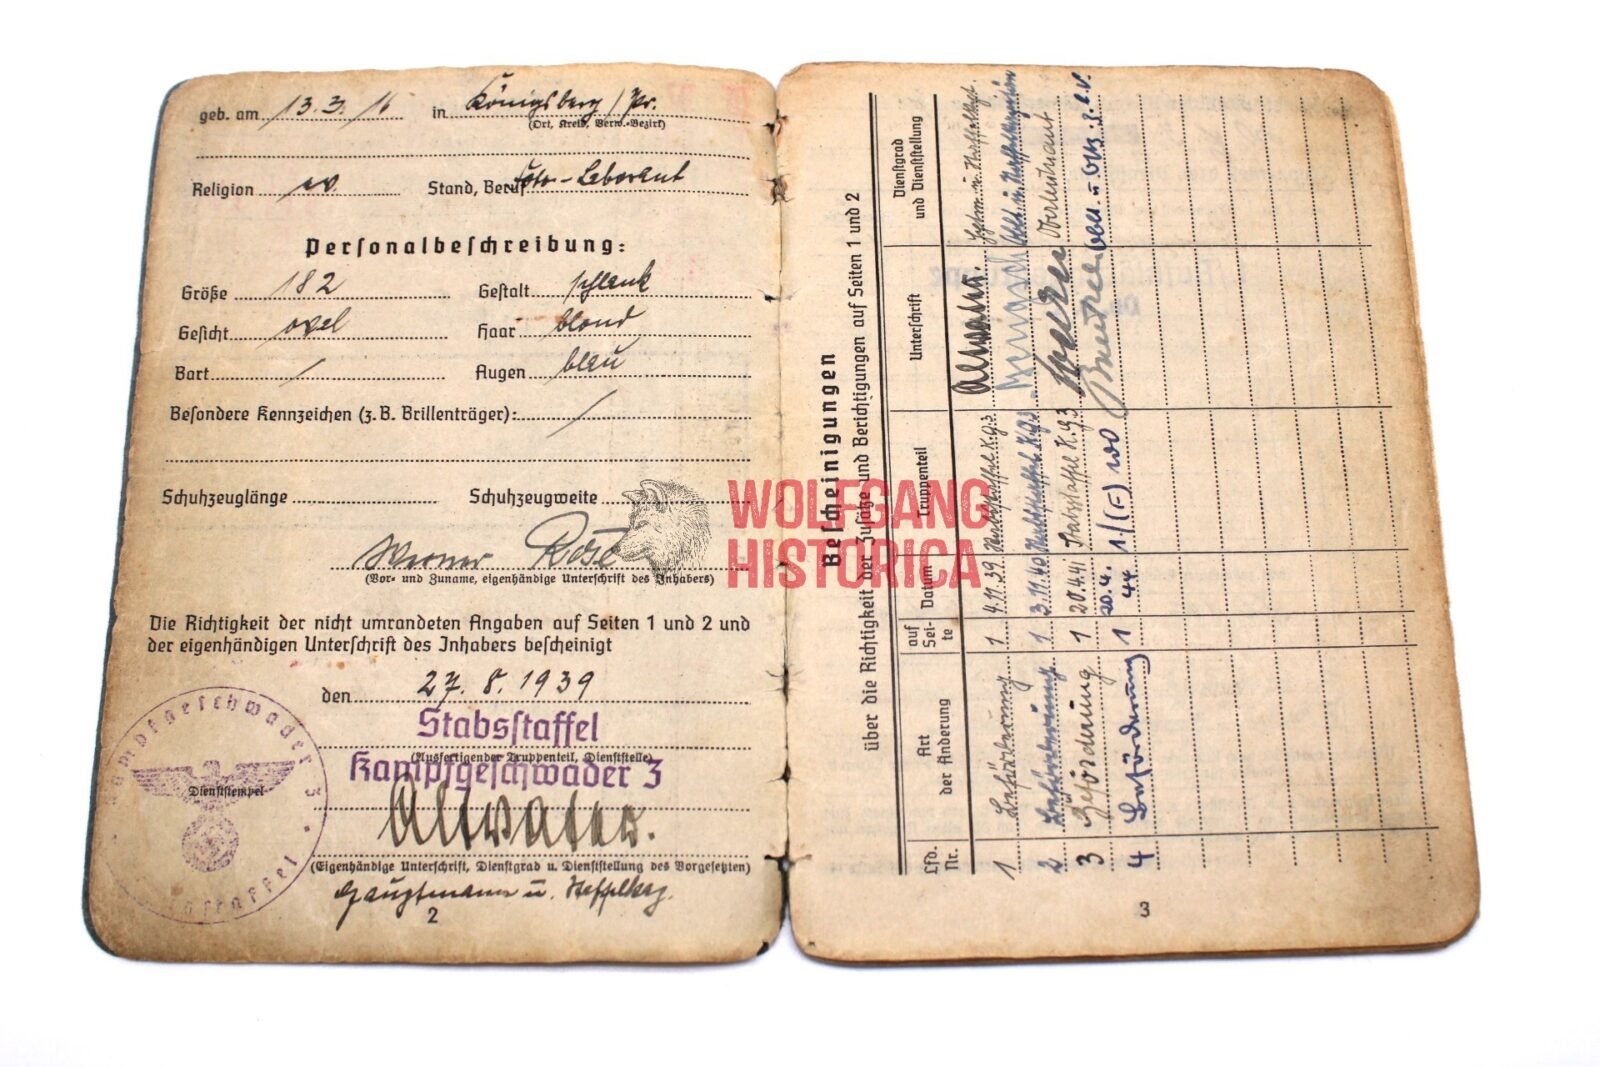 geb. am 13.3.16 in Königsberg/Pr.
(Ort, Kreis, Verw.-Bezirk)
Religion ev. Stand, Beruf Foto-Laborant
Personalbeschreibung:
Größe 182 Gestalt schlank
Gesicht oval Haar blond
Bart / Augen blau
Besondere Kennzeichen (z.B. Brillenträger): /
Schuhzeuglänge Schuhzeugweite
Werner Rose
(Vor- und Zuname, eigenhändige Unterschrift des Inhabers)
Die Richtigkeit der nicht umrandeten Angaben auf Seiten 1 und 2 und
der eigenhändigen Unterschrift des Inhabers bescheinigt
den 27. 8. 1939
Stabsstaffel
(Ausfertigender Truppenteil, Dienststelle)
Kampfgeschwader 3
Kampfgeschwader 3
Dienststempel
Altvater.
(Eigenhändige Unterschrift, Dienstgrad u. Dienststellung des Vorgesetzten)
Hauptmann u.
2
WOLFGANG
HISTORICA
Bescheinigungen
über die Richtigkeit der Zusätze und Berichtigungen auf Seiten 1 und 2
Lfd. Nr. Art der Änderung auf Seite Datum Truppenteil Unterschrift Dienstgrad und Dienststellung
1 Beförderung 1 4.11.39 K.G.3
2 Beförderung 1 3.11.40 K.G.3
3 Beförderung 1 20.4.41 Stabsstaffel K.G.3 Oberleutnant
4 Beförderung 1 20.4.44
3